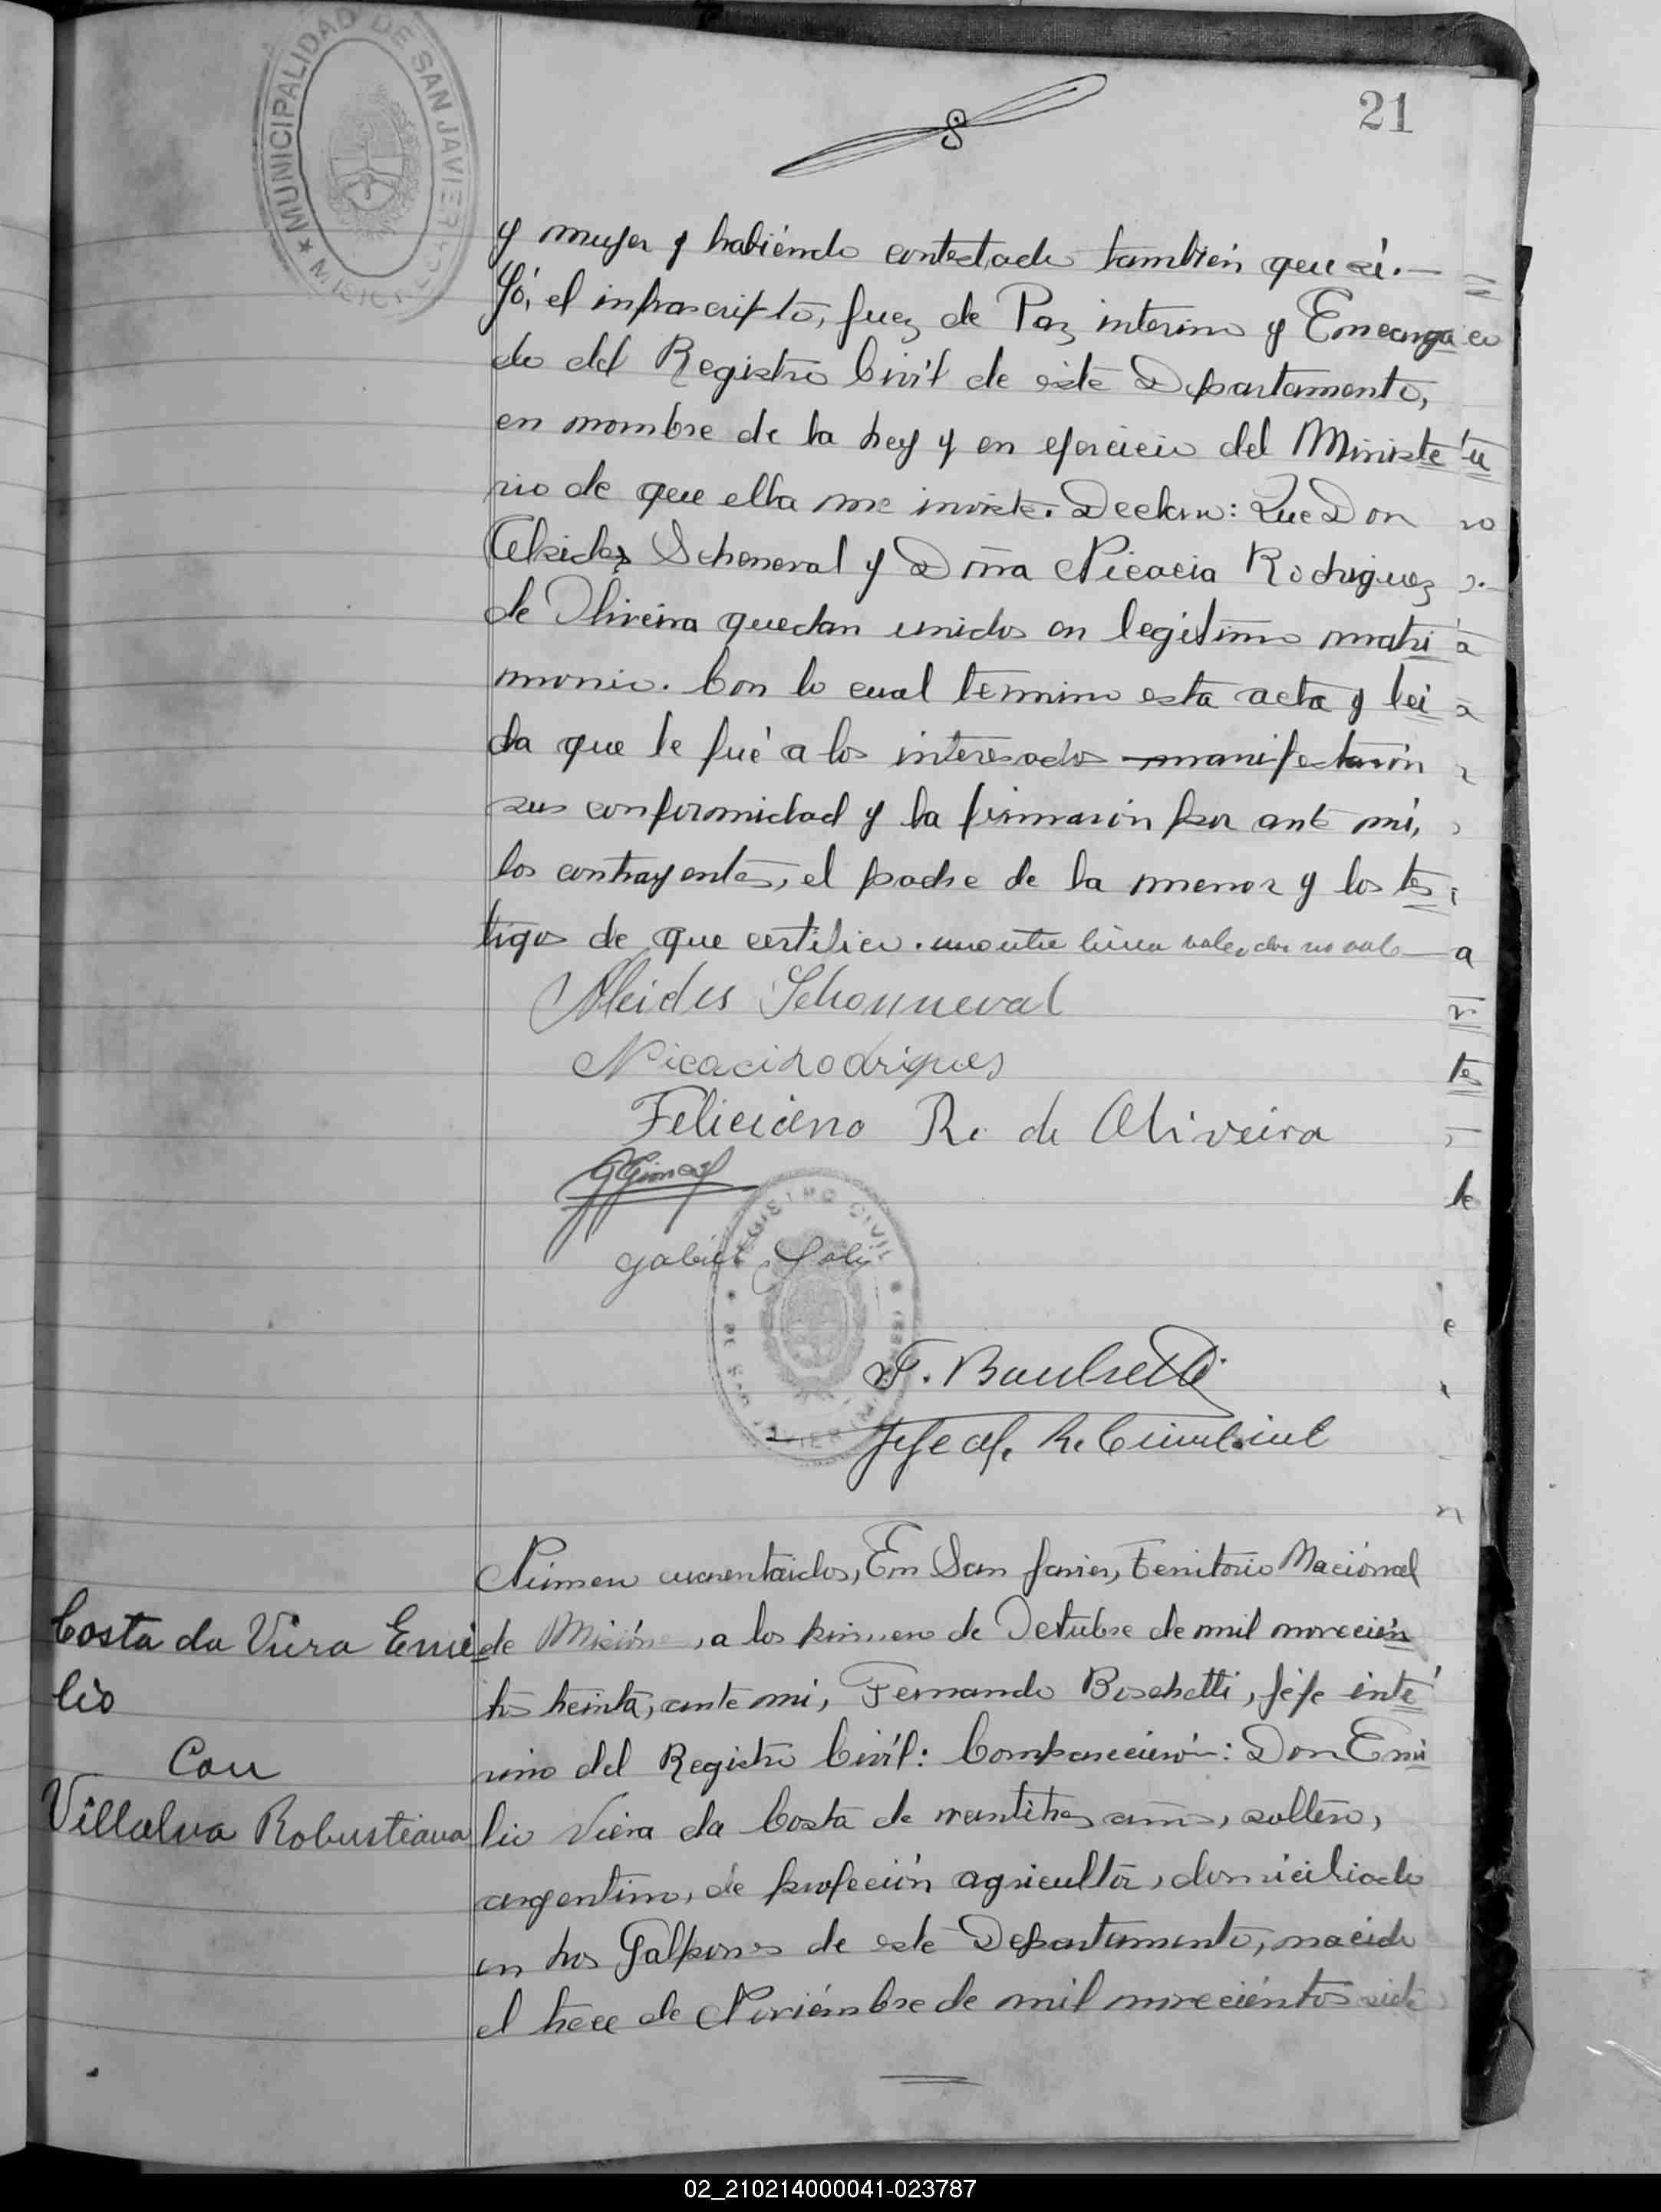 MUNICIPALIDAD DE SAN JAVIER
21
y mujer y habiéndo contestado también que sí.—
Yó, el infrascripto, Juez de Paz interino y Encarga
do del Registro Civíl de este Departamento,
en nombre de la Ley y en ejercicio del Ministe
rio de que ella me inviste. Declaro: Que Don
Alcides Scheneval y Doña Nicacia Rodriguez
de Oliveira quedan unidos en legítimo matri
monio. Con lo cual termino esta acta y leí
da que le fué a los interesados manifestarón
sus conformidad y la firmarón por ante mí,
los contrayentes, el padre de la menor y los tes
tigos de que certifico. entre línea vale, no vale
Alcides Schonneval
Nicaci Rodrigues
Feliciano R. de Oliveira
Gabriel
REGISTRO CIVIL
F. Bouchetti
Jefe
Número cuarentaidos, En San Javier, Territorio Naciónal
de Misiónes, a los primero de Octubre de mil novecién
tos treinta, ante mi, Fernando Boschetti, Jéfe inte
rino del Registro Civíl: Comparecierón: Don Emi
lio Viera da Costa de veintitres años, soltero,
argentino, de profeción agricultor, domiciliado
en Los Galpones de este Departamento, nacido
el trece de Noviémbre de mil noveciéntos siete
Costa da Viera Emi
lio
Con
Villalva Robustiana
02_210214000041-023787